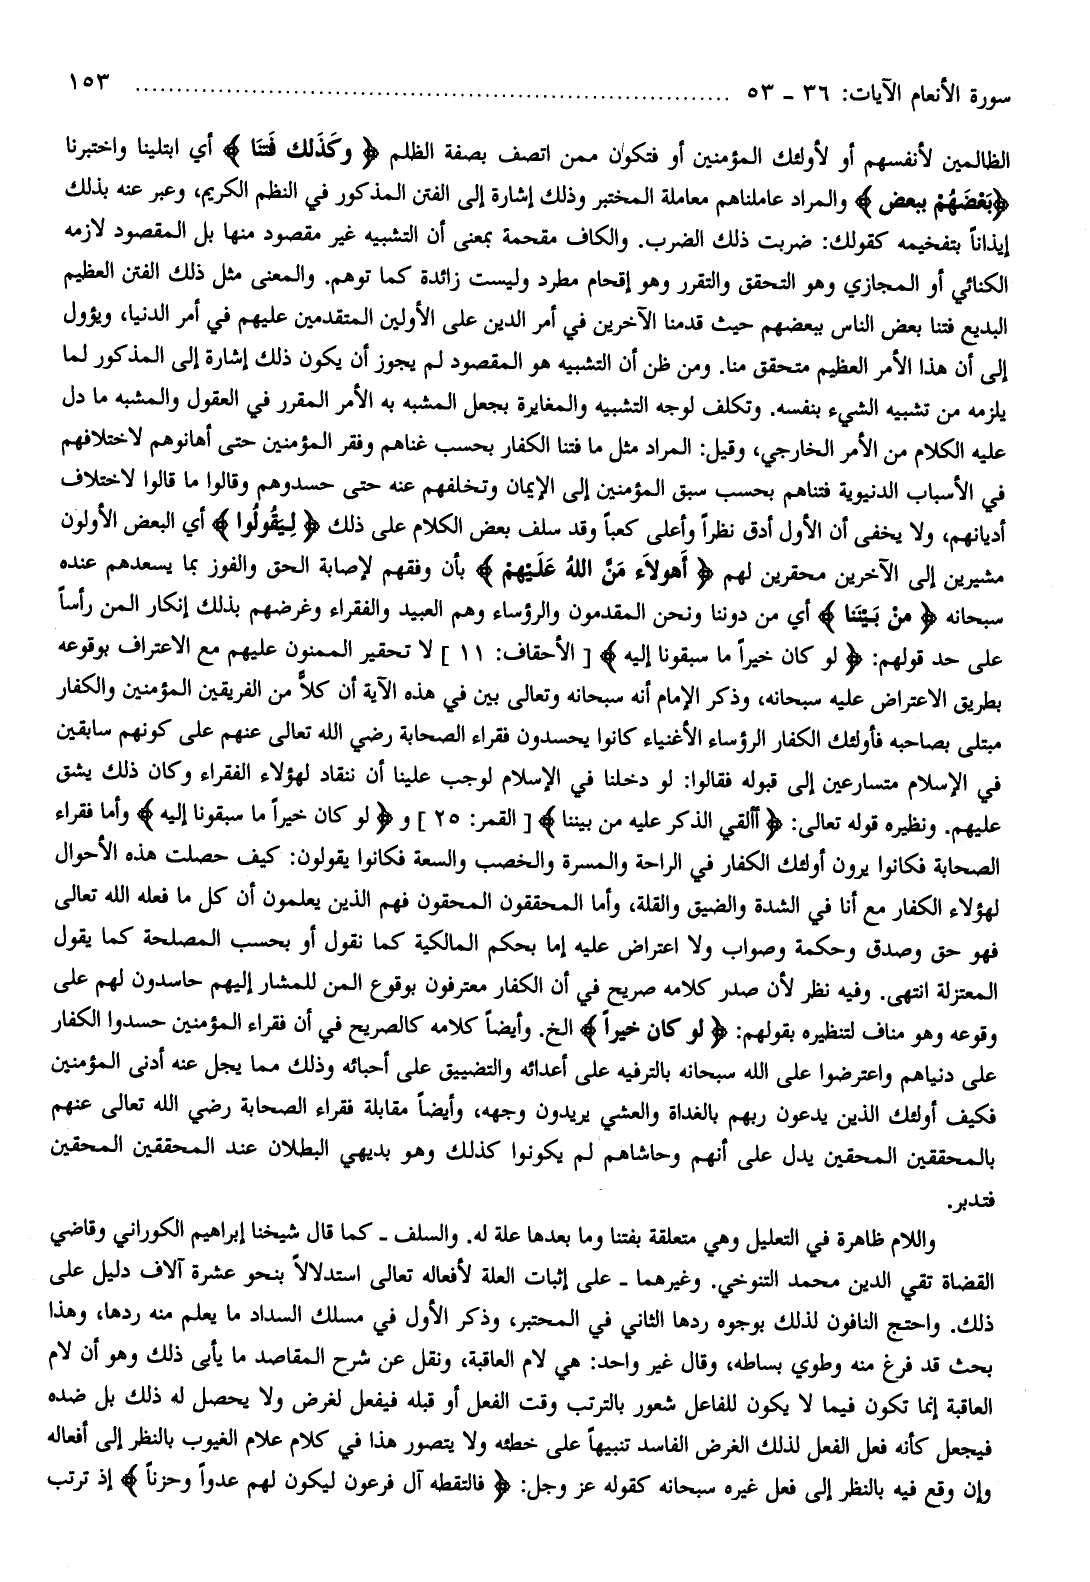 سورة الأنعام الآيات: ٣٦ ـ ٥٣ ........................................................................ ١٥٣
الظالمين لأنفسهم أو لأولئك المؤمنين أو فتكون ممن اتصف بصفة الظلم ﴿ وكَذَلك فَتَنَا ﴾ أي ابتلينا واختبرنا
﴿بَعْضَهُمْ ببعض ﴾ والمراد عاملناهم معاملة المختبر وذلك إشارة إلى الفتن المذكور في النظم الكريم، وعبر عنه بذلك
إيذاناً بتفخيمه كقولك: ضربت ذلك الضرب. والكاف مقحمة بمعنى أن التشبيه غير مقصود منها بل المقصود لازمه
الكنائي أو المجازي وهو التحقق والتقرر وهو إقحام مطرد وليست زائدة كما توهم. والمعنى مثل ذلك الفتن العظيم
البديع فتنا بعض الناس ببعضهم حيث قدمنا الآخرين في أمر الدين على الأولين المتقدمين عليهم في أمر الدنيا، ويؤول
إلى أن هذا الأمر العظيم متحقق منا. ومن ظن أن التشبيه هو المقصود لم يجوز أن يكون ذلك إشارة إلى المذكور لما
يلزمه من تشبيه الشيء بنفسه. وتكلف لوجه التشبيه والمغايرة بجعل المشبه به الأمر المقرر في العقول والمشبه ما دل
عليه الكلام من الأمر الخارجي، وقيل: المراد مثل ما فتنا الكفار بحسب غناهم وفقر المؤمنين حتى أهانوهم لاختلافهم
في الأسباب الدنيوية فتناهم بحسب سبق المؤمنين إلى الإيمان وتخلفهم عنه حتى حسدوهم وقالوا ما قالوا لاختلاف
أديانهم، ولا يخفى أن الأول أدق نظراً وأعلى كعباً وقد سلف بعض الكلام على ذلك ﴿ لِيَقُولُوا ﴾ أي البعض الأولون
مشيرين إلى الآخرين محقرين لهم ﴿ أَهولاَء مَنَّ اللهُ عَلَيْهمْ ﴾ بأن وفقهم لإصابة الحق والفوز بما يسعدهم عنده
سبحانه ﴿ منْ بَيْنَنا ﴾ أي من دوننا ونحن المقدمون والرؤساء وهم العبيد والفقراء وغرضهم بذلك إنكار المن رأساً
على حد قولهم: ﴿ لو كان خيراً ما سبقونا إليه ﴾ [ الأحقاف: ١١ ] لا تحقير الممنون عليهم مع الاعتراف بوقوعه
بطريق الاعتراض عليه سبحانه، وذكر الإمام أنه سبحانه وتعالى بين في هذه الآية أن كلاًّ من الفريقين المؤمنين والكفار
مبتلى بصاحبه فأولئك الكفار الرؤساء الأغنياء كانوا يحسدون فقراء الصحابة رضي الله تعالى عنهم على كونهم سابقين
في الإسلام متسارعين إلى قبوله فقالوا: لو دخلنا في الإسلام لوجب علينا أن ننقاد لهؤلاء الفقراء وكان ذلك يشق
عليهم. ونظيره قوله تعالى: ﴿ أألقي الذكر عليه من بيننا ﴾ [ القمر: ٢٥ ] و ﴿ لو كان خيراً ما سبقونا إليه ﴾ وأما فقراء
الصحابة فكانوا يرون أولئك الكفار في الراحة والمسرة والخصب والسعة فكانوا يقولون: كيف حصلت هذه الأحوال
لهؤلاء الكفار مع أنا في الشدة والضيق والقلة، وأما المحققون المحقون فهم الذين يعلمون أن كل ما فعله الله تعالى
فهو حق وصدق وحكمة وصواب ولا اعتراض عليه إما بحكم المالكية كما نقول أو بحسب المصلحة كما يقول
المعتزلة انتهى. وفيه نظر لأن صدر كلامه صريح في أن الكفار معترفون بوقوع المن للمشار إليهم حاسدون لهم على
وقوعه وهو مناف لتنظيره بقولهم: ﴿ لو كان خيراً ﴾ الخ. وأيضاً كلامه كالصريح في أن فقراء المؤمنين حسدوا الكفار
على دنياهم واعترضوا على الله سبحانه بالترفيه على أعدائه والتضييق على أحبائه وذلك مما يجل عنه أدنى المؤمنين
فكيف أولئك الذين يدعون ربهم بالغداة والعشي يريدون وجهه، وأيضاً مقابلة فقراء الصحابة رضي الله تعالى عنهم
بالمحققين المحقين يدل على أنهم وحاشاهم لم يكونوا كذلك وهو بديهي البطلان عند المحققين المحقين
فتدبر.
واللام ظاهرة في التعليل وهي متعلقة بفتنا وما بعدها علة له. والسلف ـ كما قال شيخنا إبراهيم الكوراني وقاضي
القضاة تقي الدين محمد التنوخي. وغيرهما ـ على إثبات العلة لأفعاله تعالى استدلالاً بنحو عشرة آلاف دليل على
ذلك. واحتج النافون لذلك بوجوه ردها الثاني في المختبر، وذكر الأول في مسلك السداد ما يعلم منه ردها، وهذا
بحث قد فرغ منه وطوي بساطه، وقال غير واحد: هي لام العاقبة، ونقل عن شرح المقاصد ما يأبى ذلك وهو أن لام
العاقبة إنما تكون فيما لا يكون للفاعل شعور بالترتب وقت الفعل أو قبله فيفعل لغرض ولا يحصل له ذلك بل ضده
فيجعل كأنه فعل الفعل لذلك الغرض الفاسد تنبيهاً على خطئه ولا يتصور هذا في كلام علام الغيوب بالنظر إلى أفعاله
وإن وقع فيه بالنظر إلى فعل غيره سبحانه كقوله عز وجل: ﴿ فالتقطه آل فرعون ليكون لهم عدواً وحزناً ﴾ إذ ترتب